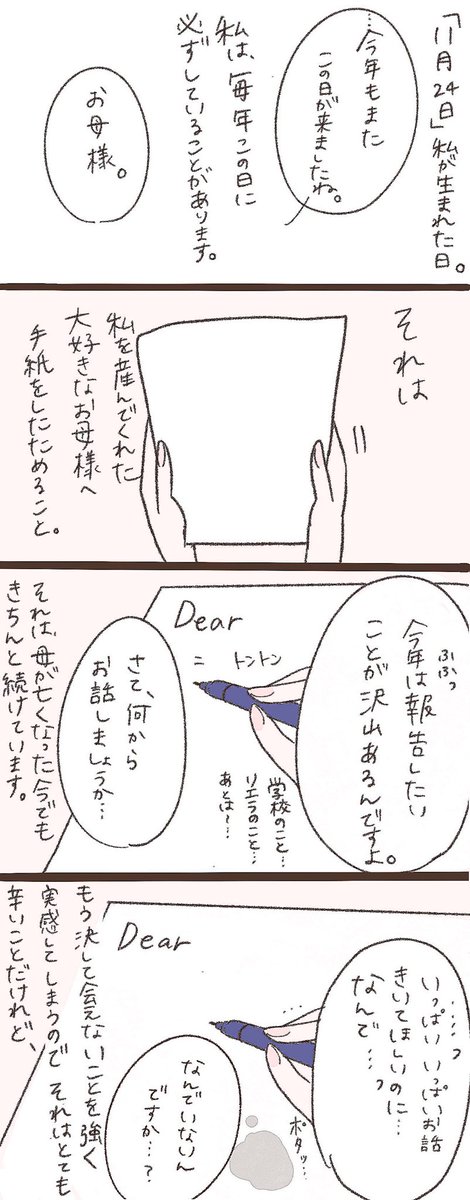 「11月24日」私が生まれた日。
…今年もまた
この日が来ましたね。
私は、毎年この日に
必ずしていることがあります。
お母様。
それは
私を産んでくれた
大好きなお母様へ
手紙をしたためること。
ふふっ
今年は報告したい
ことが沢山あるんですよ。
Dear
トントン
学校のこと…
リエラのこと…
あとは〜…
さて、何から
お話しましょうか…
それは、母が亡くなった今でも
きちんと続けています。
いっぱいいっぱいお話
きいてほしいのに…
……っ
なんで……っ
Dear
……
ポタッ…
なんでいないん
ですか…？
もう決して会えないことを強く
実感してしまうので それはとても
辛いことだけれど、